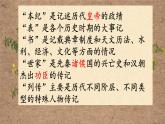 “本纪”是记述历代皇帝的政绩
“表”是各个历史时期的大事记
“书”是记载典章制度、天文历法等
“世家”是诸侯国的兴亡史和汉朝
杰出功臣的传记
“列传”主要是历代不同阶层不同类
型的特殊人物传记